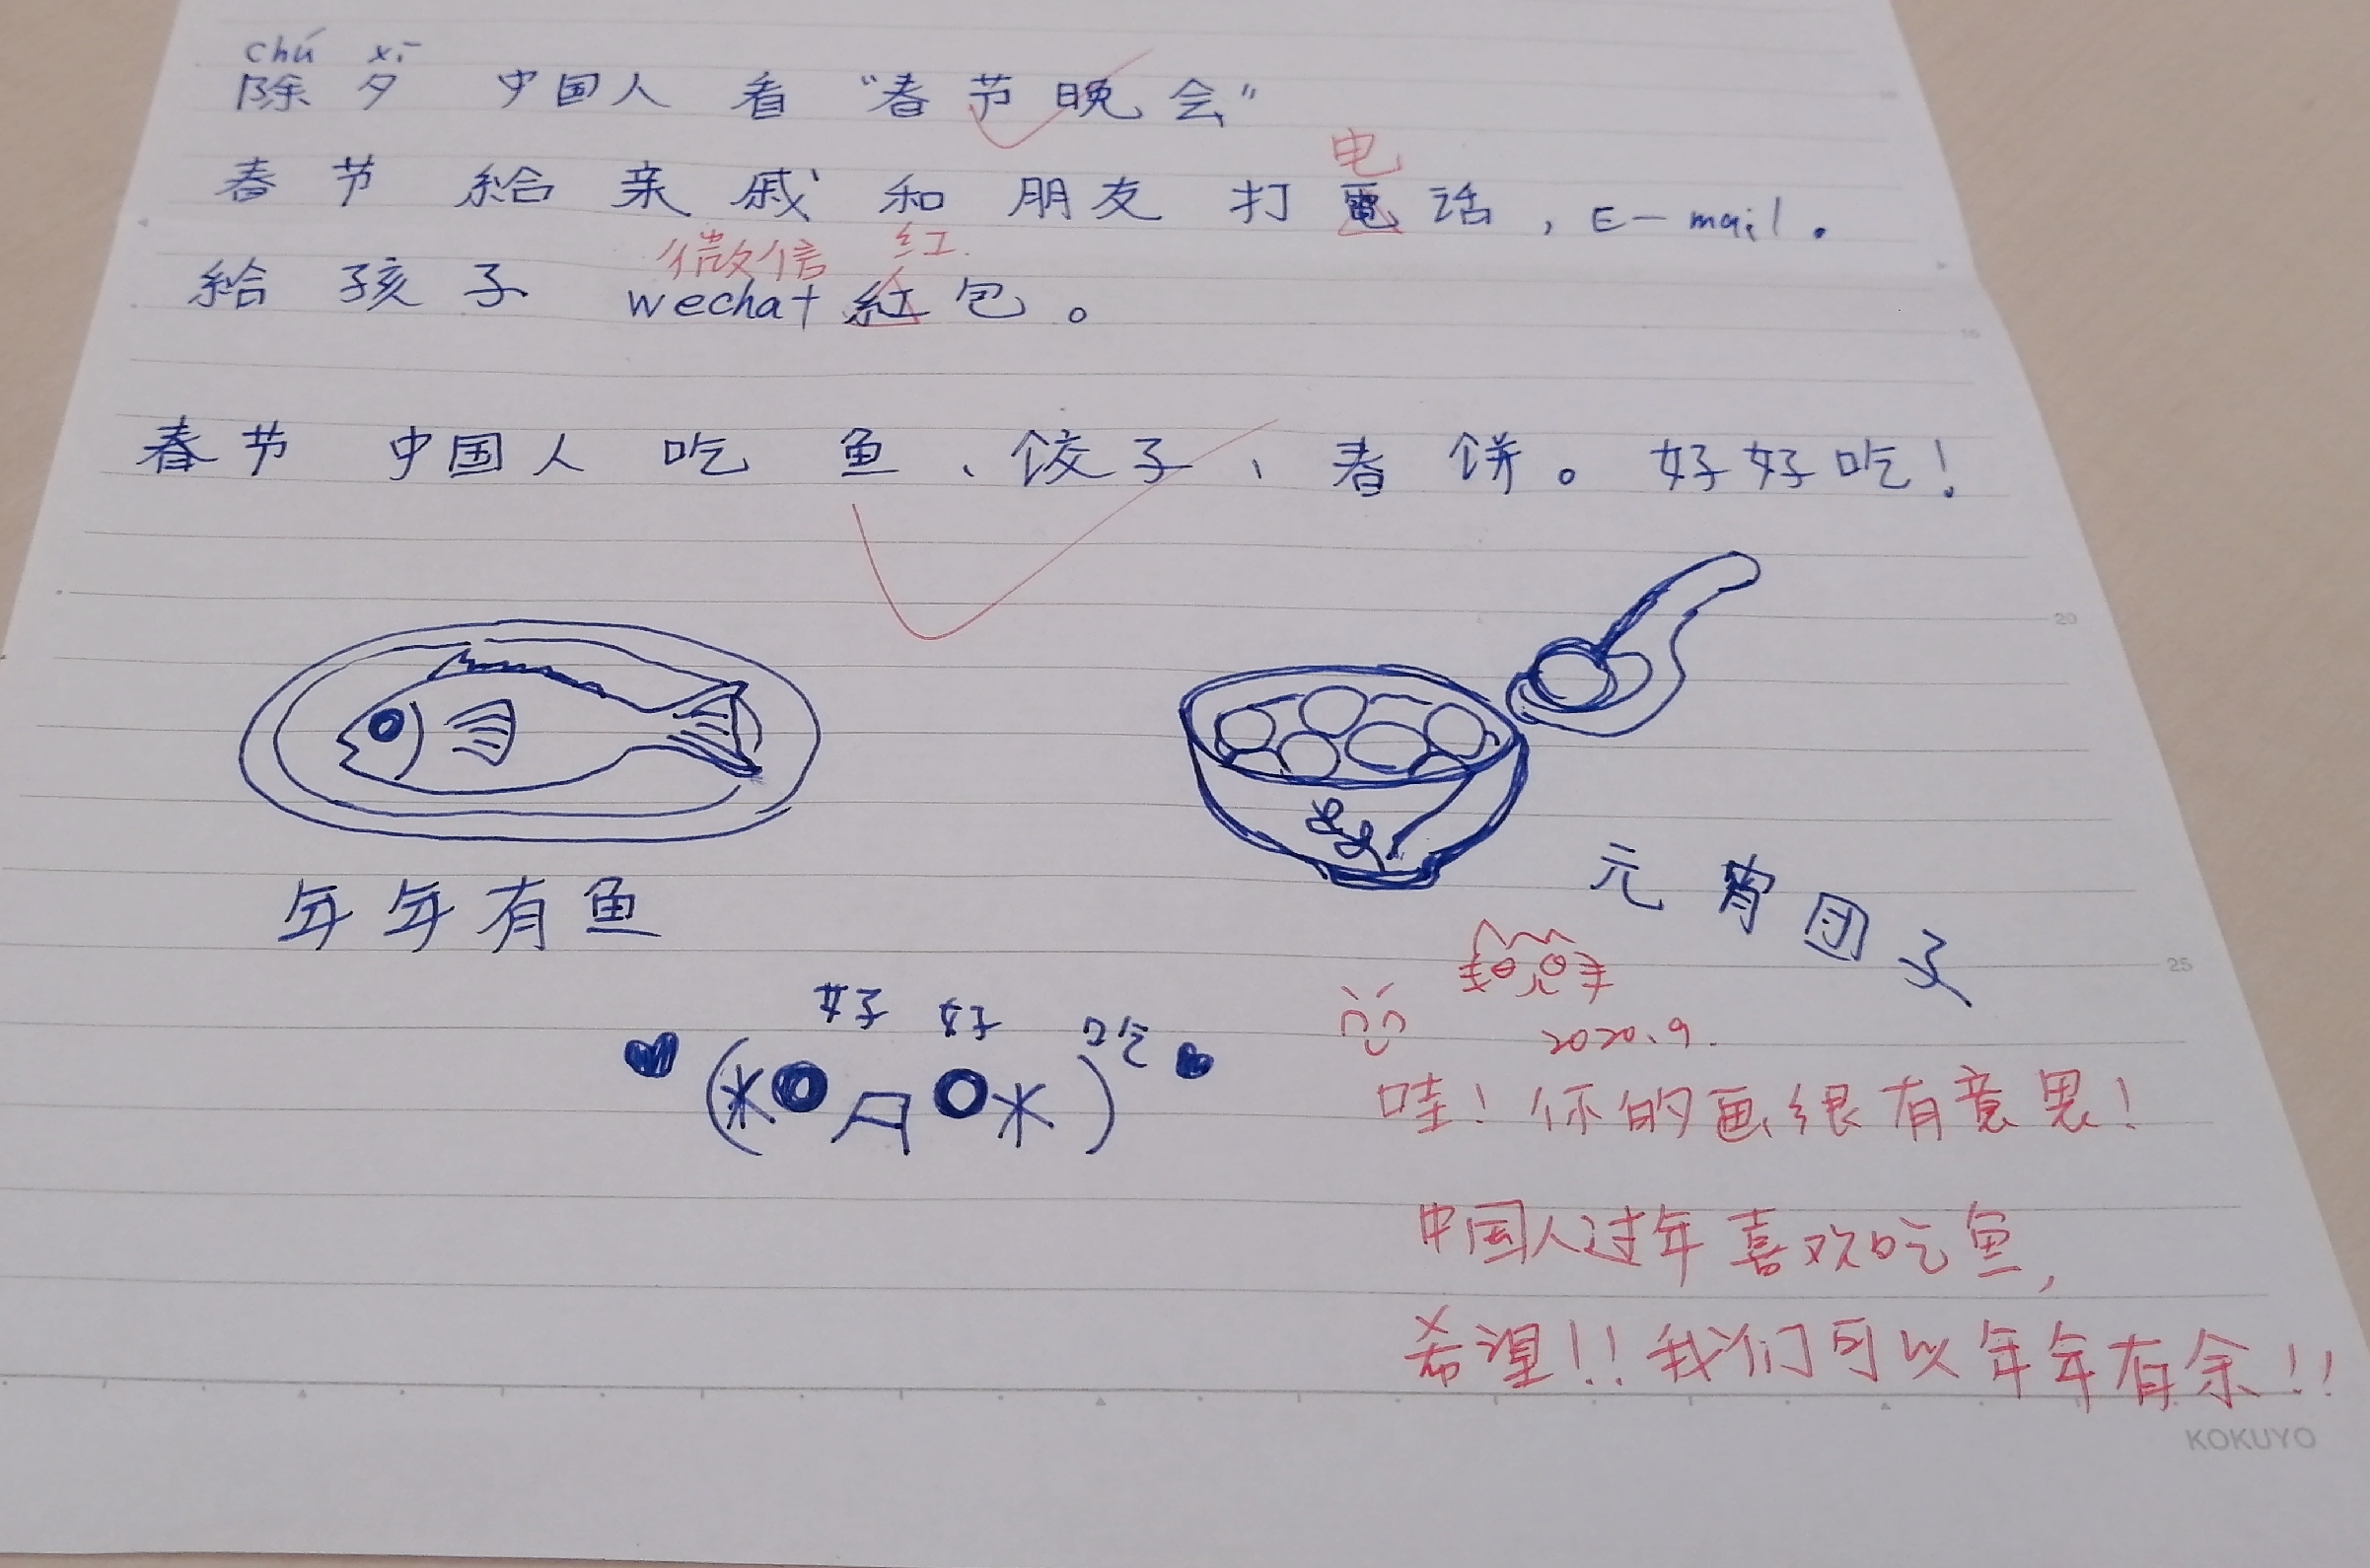 chú xī
除夕 中国人 看 “春节晚会”
电
春节 給 亲戚 和 朋友 打電话, E-mail.
微信 红.
給 孩子 wechat 紅包。
春节 中国人 吃 鱼、饺子、春饼。好好吃!
年年有鱼
元宵团子
好 好 吃
2020.9.
哇!你的画很有意思!
中国人过年喜欢吃鱼,
希望!!我们可以年年有余!!
20
25
KOKUYO